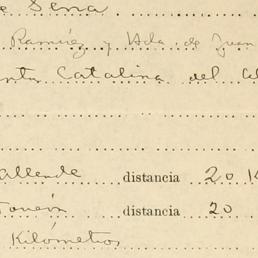 e Sena
Ramírez y Hda. de Juan
Catalina del
allende distancia 20 K
distancia 20
Kilómetros